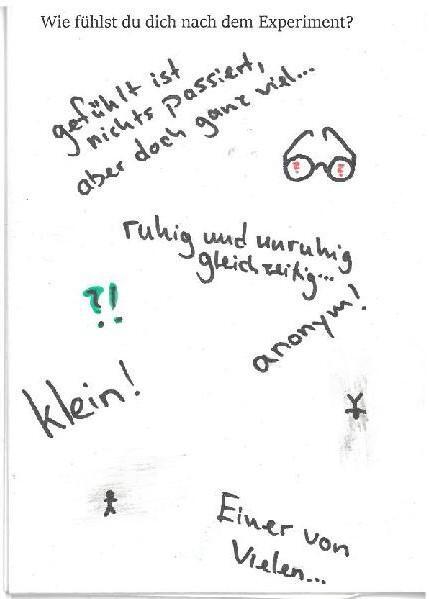 Wie fühlst du dich nach dem Experiment?
gefühlt ist
nichts passiert,
aber doch ganz viel...
? ?
ruhig und unruhig
gleichzeitig...
?!
anonym!
klein!
Einer von
Vielen...